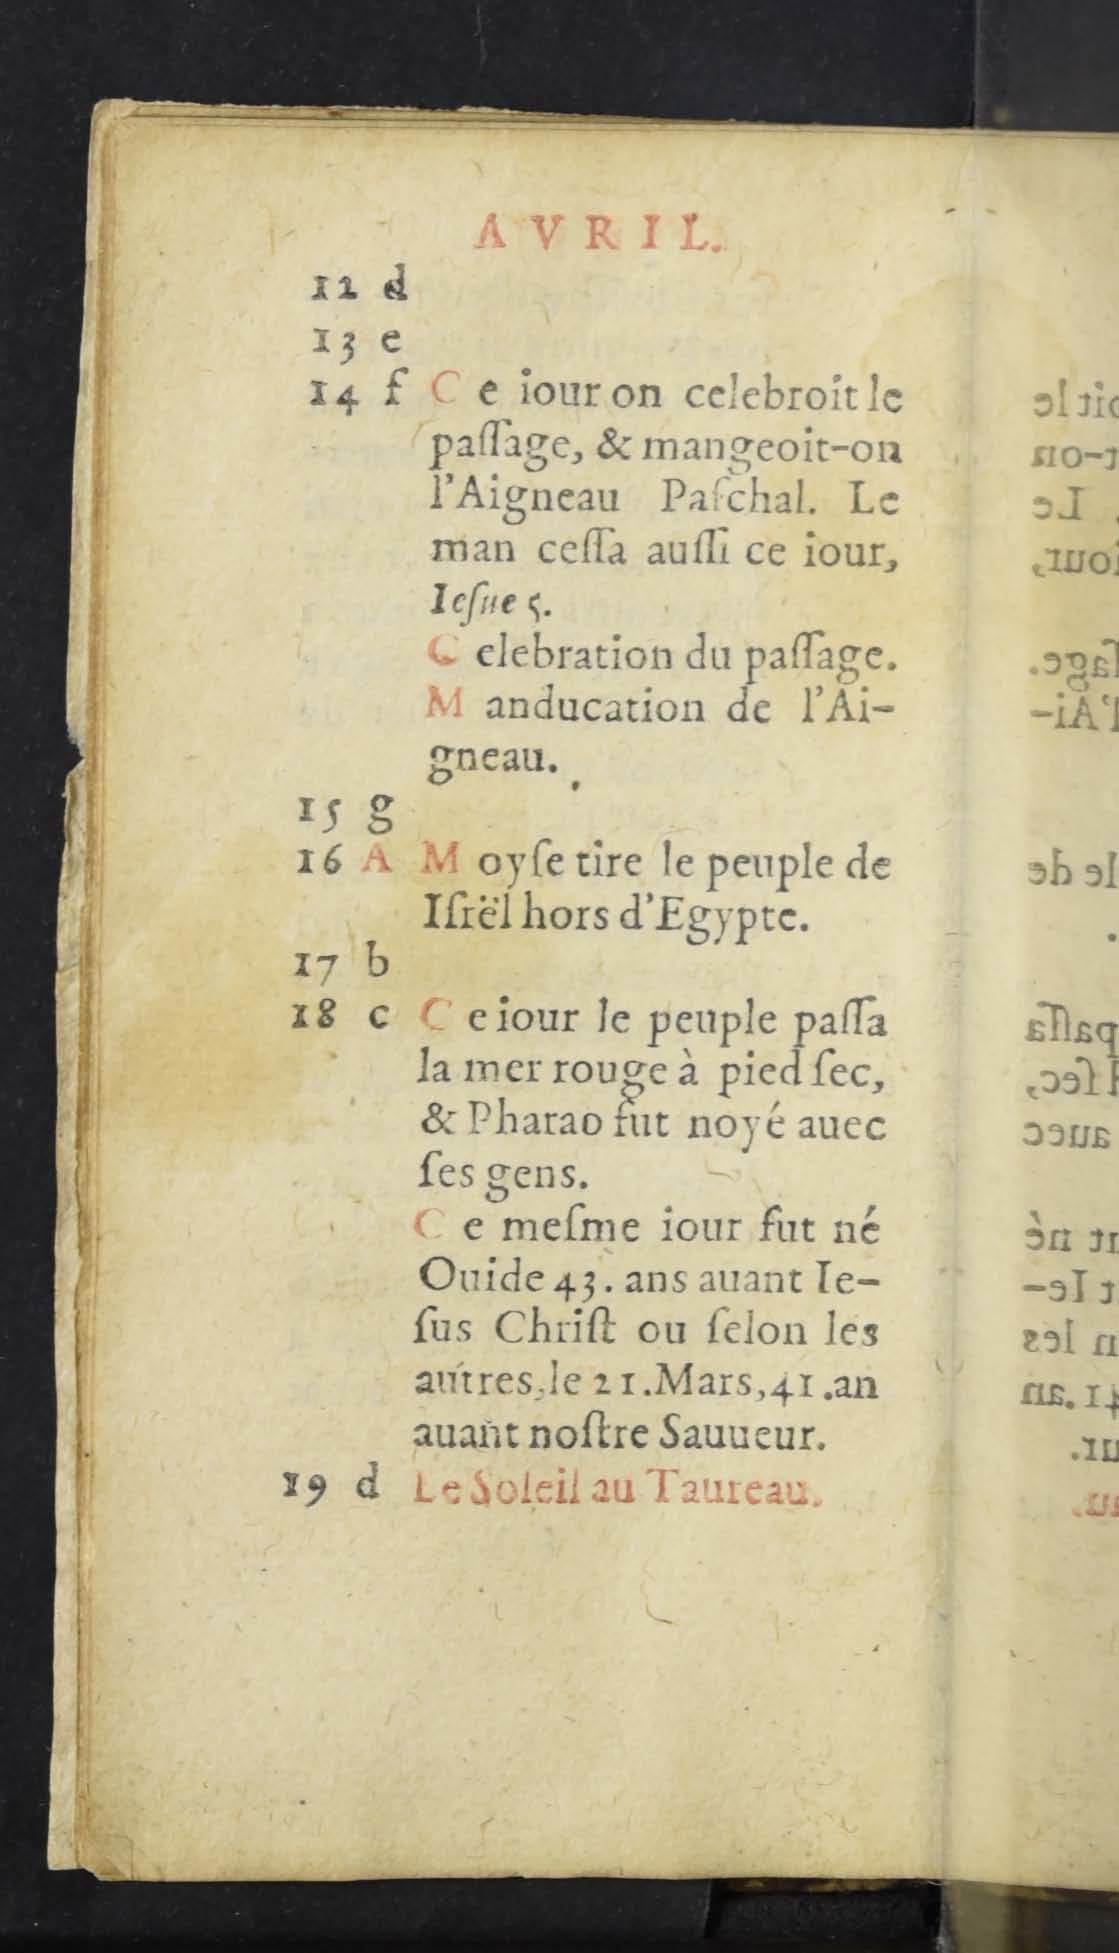 AVRIL.
12 d
13 e
14 f Ce iour on celebroit le
paſſage, & mangeoit-on
l'Aigneau Paſchal. Le
man ceſſa auſſi ce iour,
Ioſue 5.
Celebration du paſſage.
Manducation de l'Ai-
gneau.
15 g
16 A Moyſe tire le peuple de
Iſrël hors d'Egypte.
17 b
18 c Ce iour le peuple paſſa
la mer rouge à pied ſec,
& Pharao fut noyé auec
ſes gens.
Ce meſme iour fut né
Ouide 43. ans auant Ie-
ſus Chriſt ou ſelon les
autres, le 21. Mars, 41. an
auant noſtre Sauueur.
19 d Le Soleil au Taureau.